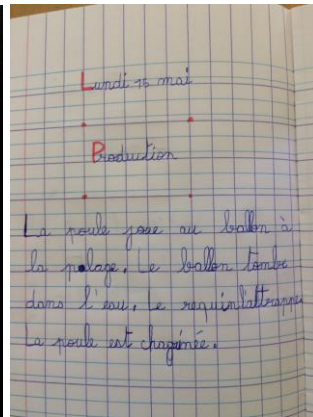 Lundi 15 mai
Production
La poule joue au ballon à
la polage. Le ballon tombe
dans l'eau. Le requin l'attrappe
La poule est chagrinée.